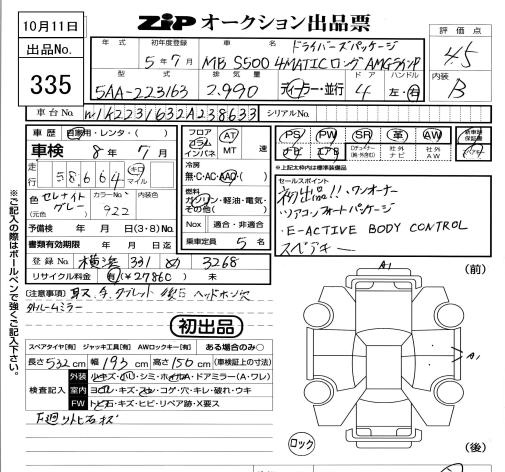 10月11日
ZiP オークション出品票
出品No.
335
評価点
4.5
内装
B
年式 初年度登録 車名
5年7月 MB S500 4MATICロング AMGライン
ドライバーズパッケージ
型式 排気量 ドア ハンドル
5AA-223163 2.990 ディーラー・並行 4 左・右
車台No. W1K2231632A238633 シリアルNo.
車歴 自家用・レンタ・( )
車検 8年 7月
走行 58,664 キロ マイル
色 セレナイトグレー (元色) カラーNo. 922 内装色
予備検 年 月 日 (3・8)No.
書類有効期限 年 月 日迄
登録No. 横浜 331 3268
リサイクル料金 有(¥27860) 未
フロア コラム インパネ AT MT 速
冷房 無・C・AC・AAC・( )
燃料 ガソリン・軽油・電気・その他( )
Nox 適合・非適合
乗車定員 5名
PS PW SR 革 AW 新車時保証書
ナビ エアB ロクョナー(純・外含む) 社外ナビ 社外AW
※上記太枠内は標準装備品
セールスポイント
初出品!! ワンオーナー
・リアコンフォートパッケージ
・E-ACTIVE BODY CONTROL
スペアキー
注意事項 取ス
ヘッドホン穴
ルームミラー
初出品
スペアタイヤ[有] ジャッキ工具[有] AWロックキー[有] ある場合のみ○
長さ532cm 幅193cm 高さ150cm (車検証上の寸法)
検査記入
外装 小キズ・凹・シミ・ホイールA・ドアミラー(A・ワレ)
室内 ヨゴレ・キズ・スレ・コゲ・穴・キレ・破れ・ウキ
FW トビ石・キズ・ヒビ・リペア跡・X要ス
下廻りトビ石キズ
A1
(前)
A1
ロック
(後)
※ご記入の際はボールペンで強くご記入下さい。